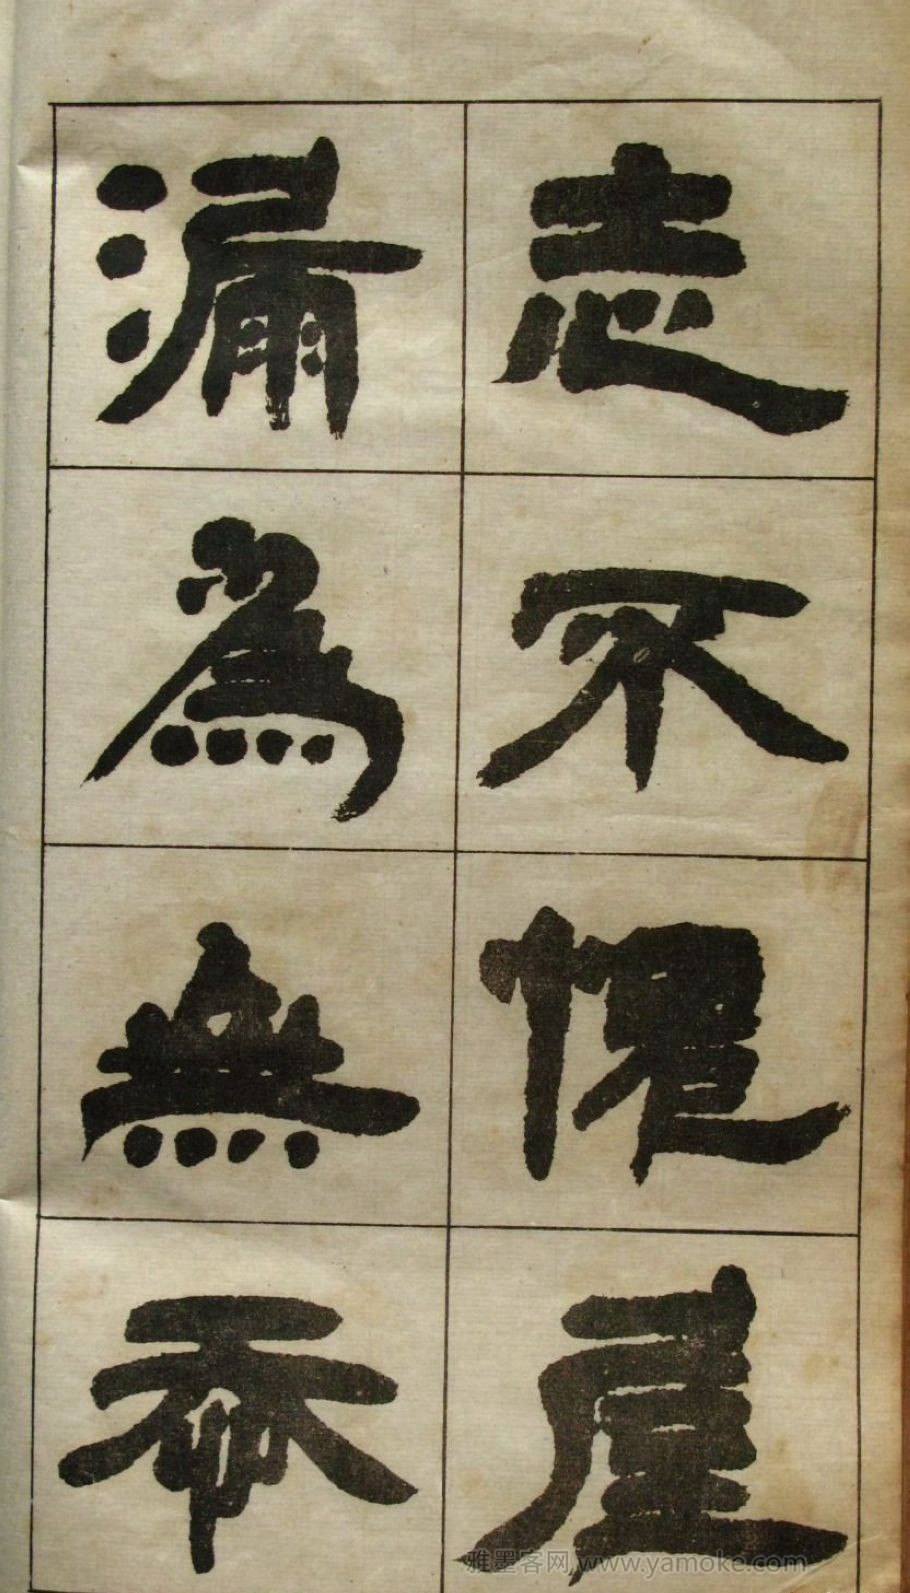 志不愧屋
漏為無忝
雅墨客网 www.yamoke.com